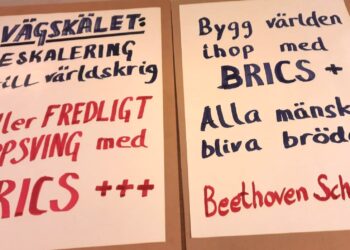 VÄGSKÄLET:
ESKALERING
ill världskrig
ller FREDLIGT
PPSVING med
RICS +++
Bygg världen
ihop med
BRICS +
Alla mänsk
bliva bröde
Beethoven Sch